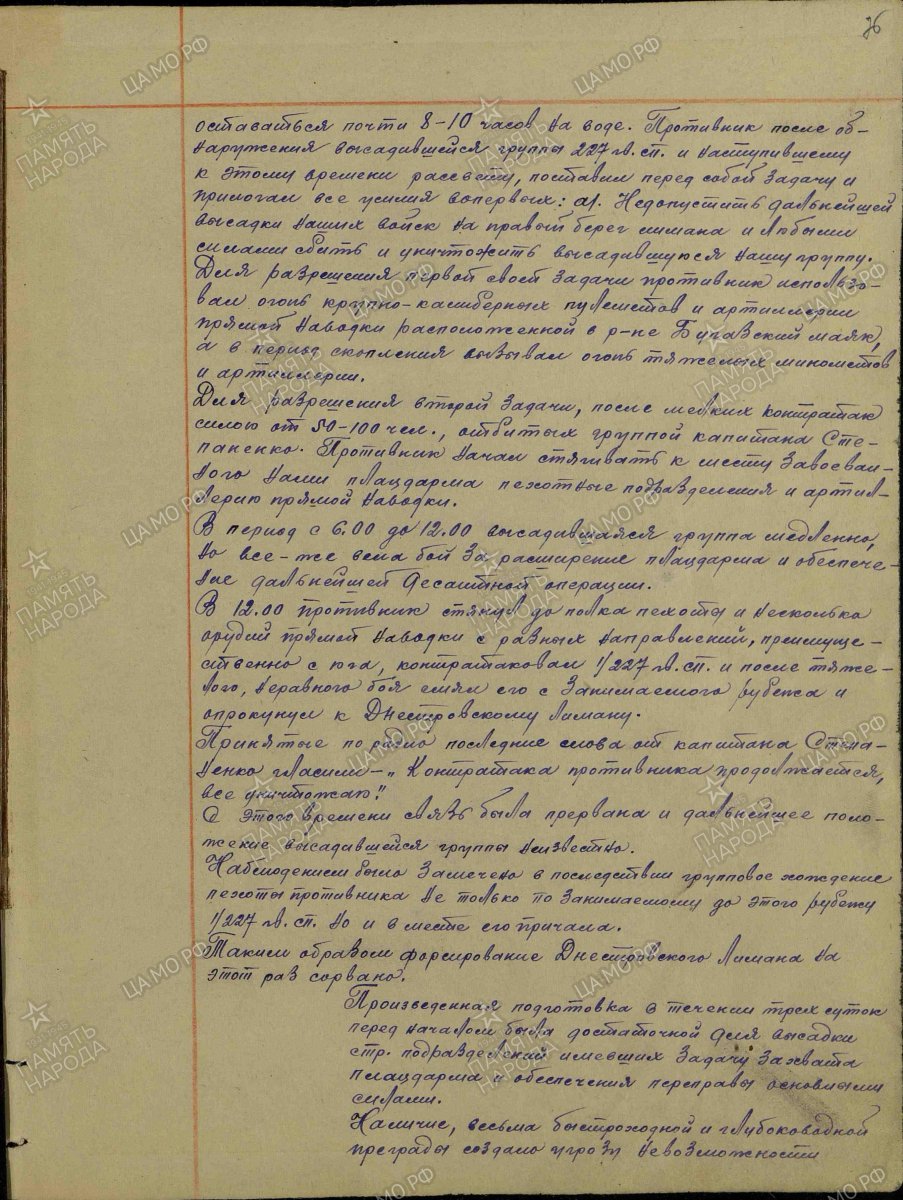 26
оставаться почти 8-10 часов на воде. Противник после об-
наружения высадившейся группы 227 гв. сп. и наступившему
к этому времени рассвету, поставил перед собой задачу и
прилогал все усилия вопервых: а/. Недопустить дальнейшей
высадки наших войск на правый берег лимана и любыми
силами сбить и уничтожить высадившуюся нашу группу.
Для разрешения первой своей задачи противник использо-
вал огонь крупно-калиберных пулеметов и артиллерии
прямой наводки расположенной в р-не Бугазский маяк,
а в период скопления вызывал огонь тяжелых минометов
и артиллерии.
Для разрешения второй задачи, после мелких контратак
силою от 50-100 чел., отбитых группой капитана Сте-
паненко. Противник начал стягивать к месту завоеван-
ного нами плацдарма пехотные подразделения и артил-
лерию прямой наводки.
В период с 6.00 до 12.00 высадившаяся группа медленно,
но все-же вела бой за расширение плацдарма и обеспече-
ние дальнейшей десантной операции.
В 12.00 противник стянул до полка пехоты и несколько
орудий прямой наводки с разных направлений, преимуще-
ственно с юга, контратаковал 1/227 гв. сп. и после тяже-
лого, неравного боя смял его с занимаемого рубежа и
опрокинул к Днестровскому лиману.
Принятые по радио последние слова от капитана Степа-
ненко гласили - „Контратака противника продолжается,
все уничтожаю".
С этого времени связь была прервана и дальнейшее поло-
жение высадившейся группы неизвестно.
Наблюдением было замечено в последствии групповое хождение
пехоты противника не только по занимаемому до этого рубежу
1/227 гв. сп. но и в месте его причала.
Таким образом форсирование Днестровского Лимана на
этот раз сорвано.
Произведенная подготовка в течении трех суток
перед началом была достаточной для высадки
стр. подразделений имевших задачу захвата
плацдарма и обеспечения переправы основными
силами.
Наличие, весьма быстроходной и глубоководной
преграды создало угрозу невозможности
ЦАМО.РФ
ПАМЯТЬ НАРОДА
1941-1945